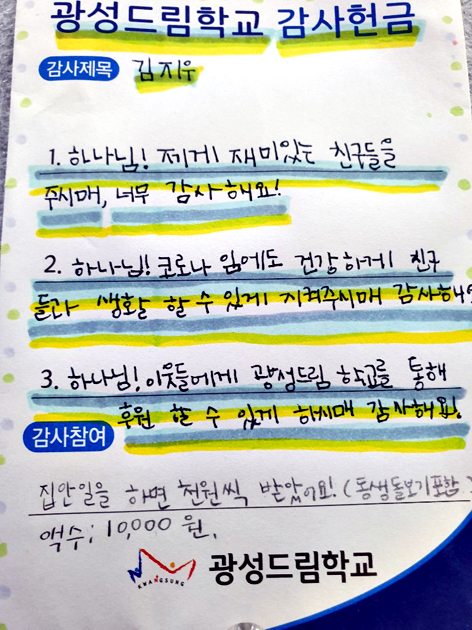 광성드림학교 감사헌금
감사제목 김지우
1. 하나님! 제게 재미있는 친구들을
주시매, 너무 감사해요!
2. 하나님! 코로나 임에도 건강하게 친구
들과 생활 할 수 있게 지켜주시매 감사해요
3. 하나님! 이웃들에게 광성드림 학교를 통해
후원 할 수 있게 하시매 감사해요!
감사참여
집안일을 하면 천원씩 받았어요! (동생돌보기포함)
액수; 10,000 원.
KWANGSUNG 광성드림학교